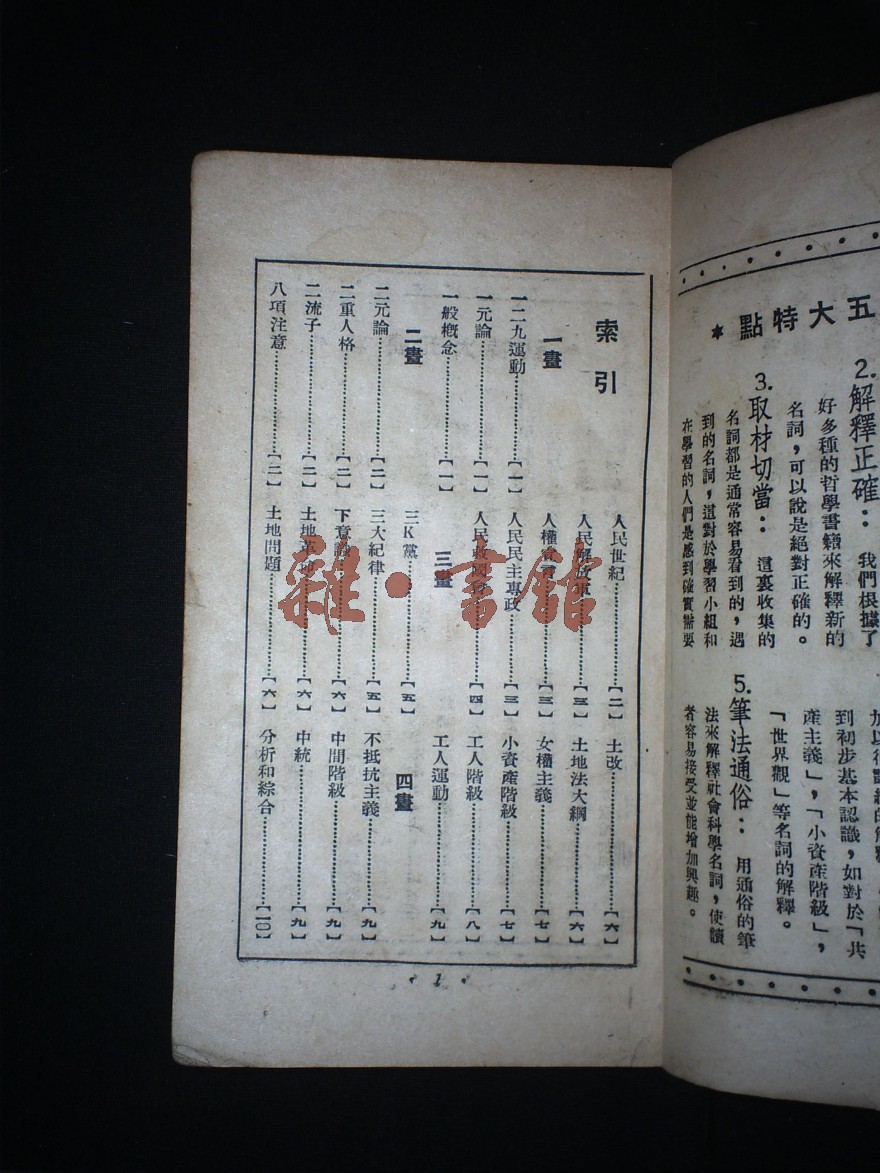 五大特點★
2.解釋正確：我們根據了
好多種的哲學書籍來解釋新的
名詞，可以說是絕對正確的。
3.取材切當：這裏收集的
名詞都是通常容易看到的，遇
到的名詞，這對於學習小組和
在學習的人們是感到確實需要
到初步基本認識，如對於「共
產主義」，「小資產階級」，
「世界觀」等名詞的解釋。
5.筆法通俗：用通俗的筆
法來解釋社會科學名詞，使讀
者容易接受並能增加興趣。
索引
一畫
一二九運動………【一】
一元論………【一】
一般概念………【一】
二畫
二元論………【二】
二重人格………【二】
二流子………【二】
八項注意………【二】
人民世紀………【二】
人民解放軍………【三】
人權………【三】
人民民主專政………【三】
人民救國會………【四】
三畫
三K黨………【五】
三大紀律………【五】
下意識………【六】
土地革命………【六】
土地問題………【六】
土改………【六】
土地法大綱………【六】
女權主義………【七】
小資產階級………【七】
工人階級………【八】
工人運動………【九】
四畫
不抵抗主義………【九】
中間階級………【九】
中統………【九】
分析和綜合………【一〇】
·1·
雜·書館